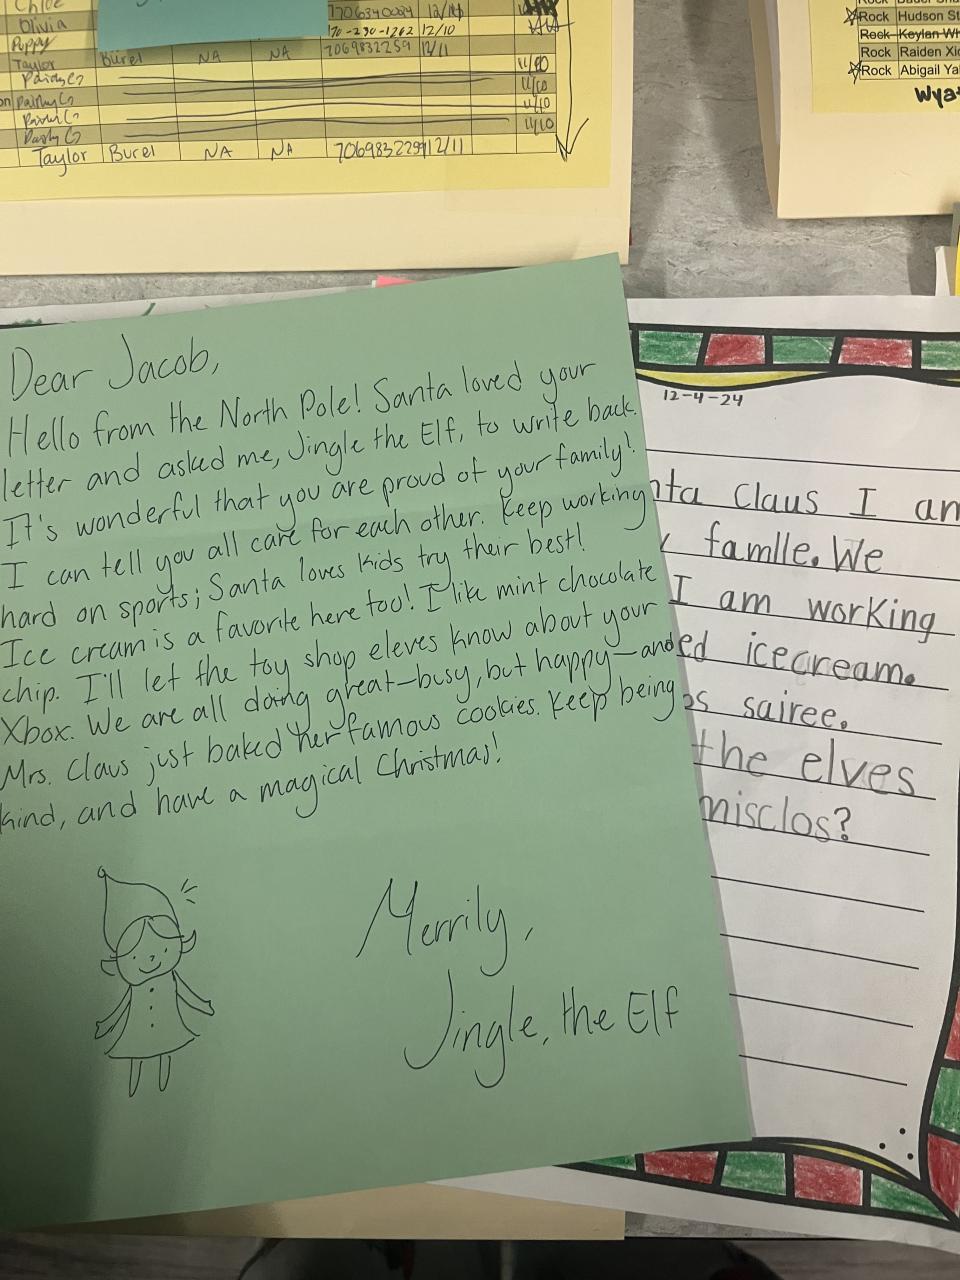 Chloe
1706340034 12/14
Olivia
70-290-1262 12/10
Poppy
7069832259 12/11
Taylor Burel NA NA
11/10
11/10
11/10
11/10
Taylor Burel NA NA 7069832259 12/11
Rock Hudson St
Rock Keylan Wh
Rock Raiden Xio
Rock Abigail Ya
Wya
Dear Jacob,
Hello from the North Pole! Santa loved your
letter and asked me, Jingle the Elf, to write back.
It's wonderful that you are proud of your family!
I can tell you all care for each other. Keep working
hard on sports; Santa loves kids try their best!
Ice cream is a favorite here too! I like mint chocolate
chip. I'll let the toy shop eleves know about your
Xbox. We are all doing great—busy, but happy—and
Mrs. Claus just baked her famous cookies. Keep being
kind, and have a magical Christmas!
Merrily,
Jingle, the Elf
12-4-24
nta Claus I am
famlle. We
I am working
ed icecream.
os sairee.
the elves
misclos?